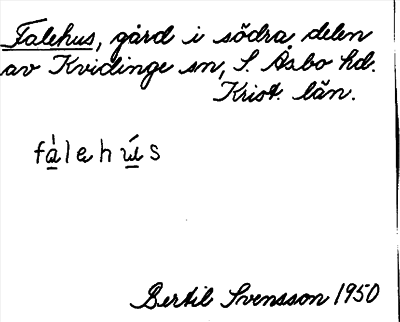 Falehus, gård i södra delen
av Kvidinge sn, S. Åsbo hd.
Krist. län.
fàlehús
Bertil Svensson 1950